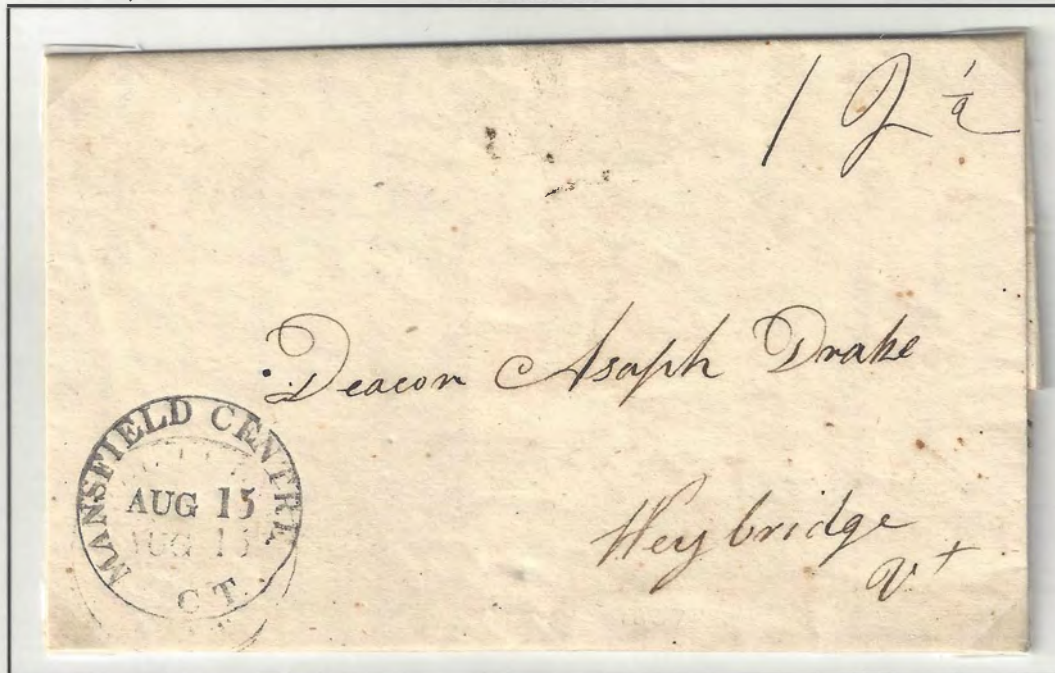 12 1/2
Deacon Asaph Drake
Weybridge
Vt
MANSFIELD CENTRE
AUG 15
AUG 15
CT.